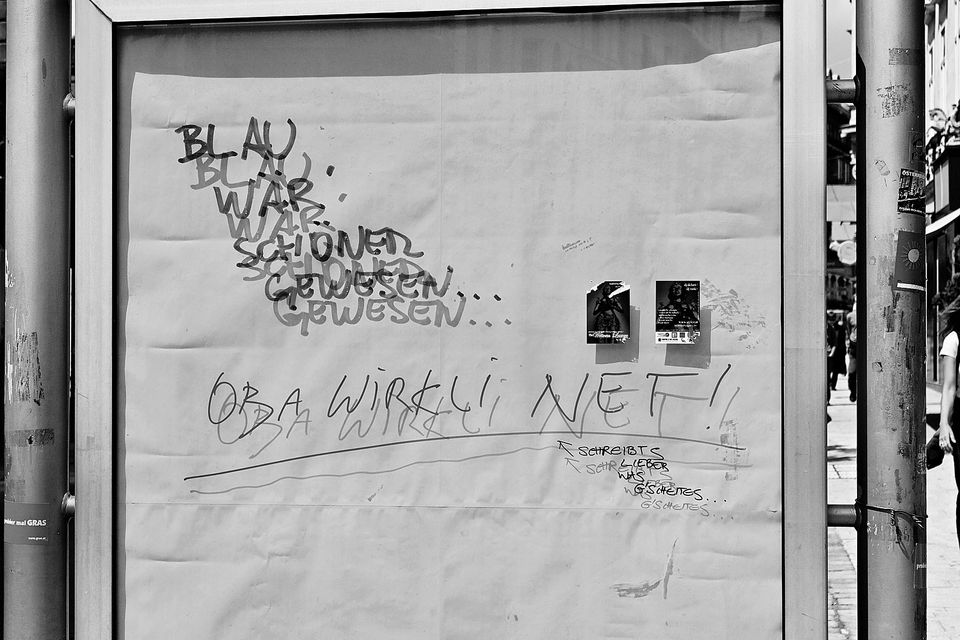 BLAU
WÄR..
SCHÖNER
GEWESEN...
OBA WIRKLI NET!
SCHREIBTS
LIEBER
WAS
G'SCHEITES...
GRAS